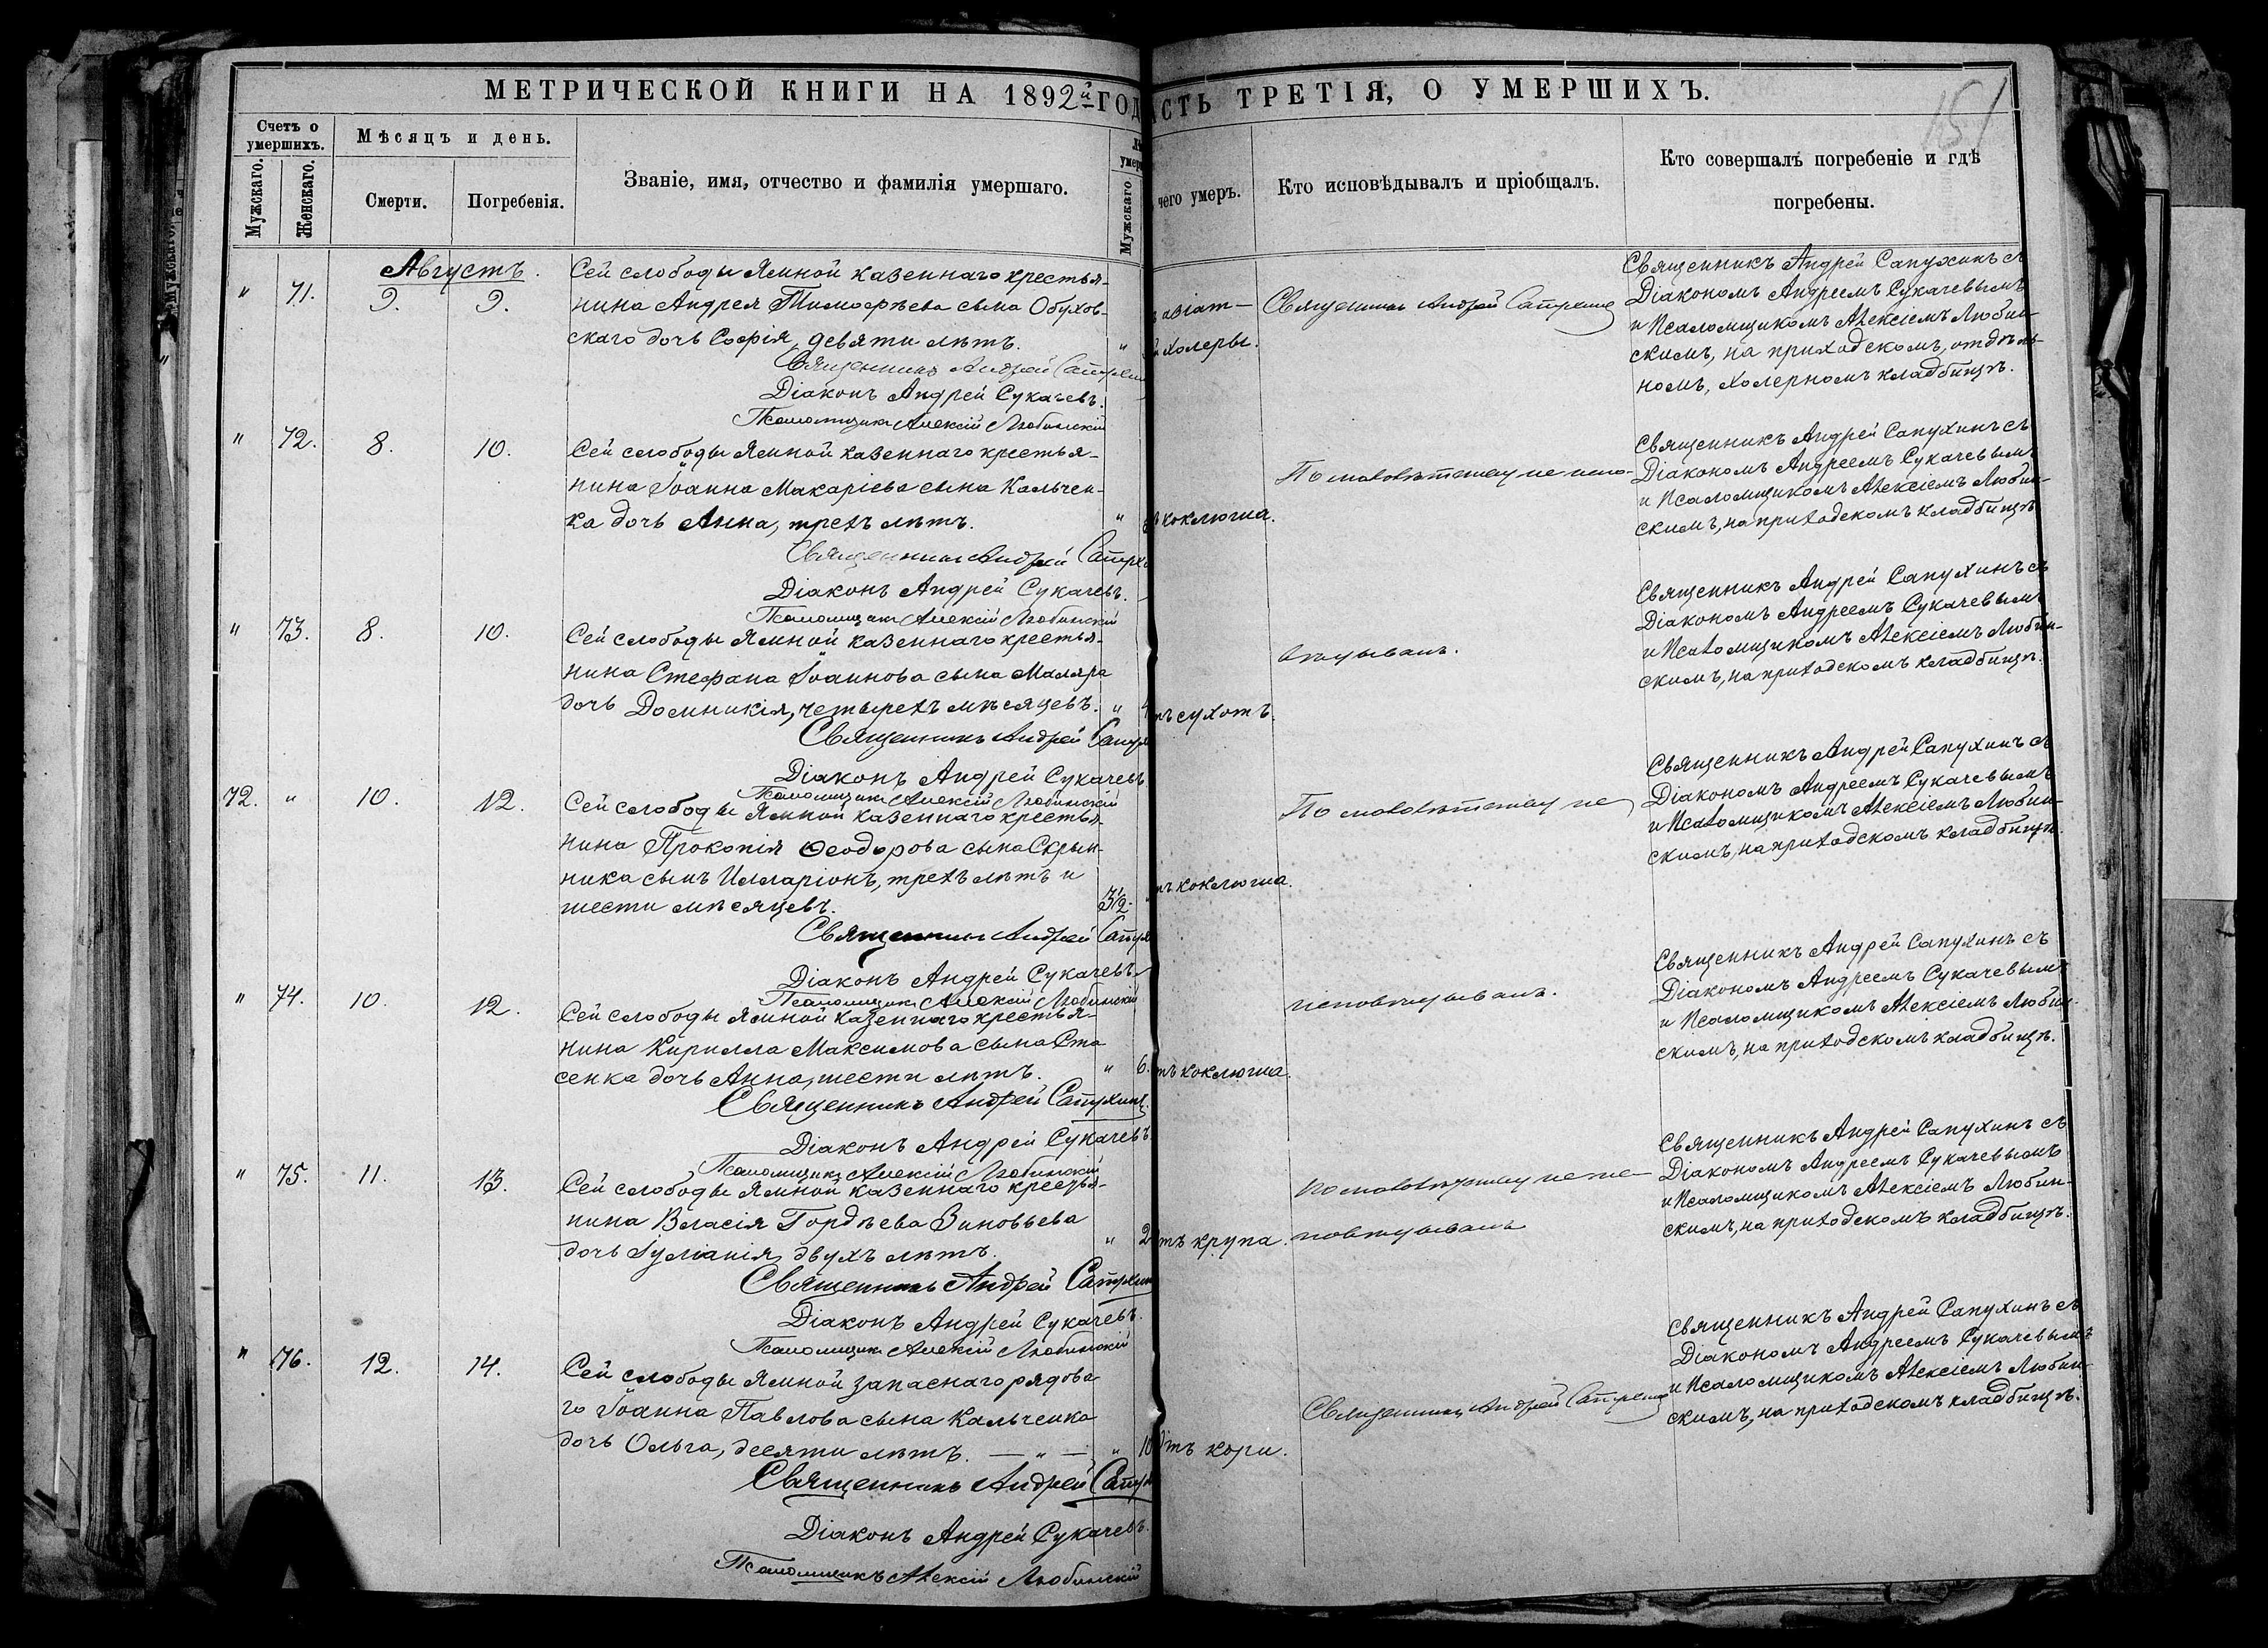 МЕТРИЧЕСКОЙ КНИГИ НА 1892й ГОД
Счетъ о умершихъ.
Мужскаго.
Женскаго.
Мѣсяцъ и день.
Смерти.
Погребенія.
Званіе, имя, отчество и фамилія умершаго.
Мужскаго
Августъ.
" 71. 9. 9.
Сей слободы Ямной казеннаго крестья-
нина Андрея Тимоѳѣева сына Обухов-
скаго дочь Софія, девяти лѣтъ. "
Священникъ Андрей Сапухин
Діаконъ Андрей Сукачевъ.
Псаломщикъ Алексій Любинскій
" 72. 8. 10.
Сей слободы Ямной казеннаго крестья-
нина Іоанна Макаріева сына Кальчен-
ка дочь Анна, трехъ лѣтъ. "
Священникъ Андрей Сапух
Діаконъ Андрей Сукачевъ.
Псаломщикъ Алексій Любинскій
" 73. 8. 10.
Сей слободы Ямной казеннаго крестья-
нина Стефана Іоаннова сына Маляра
дочь Домникія, четырехъ мѣсяцевъ. "
Священникъ Андрей Сапух
Діаконъ Андрей Сукачевъ
Псаломщикъ Алексій Любинскій
72. " 10. 12.
Сей слободы Ямной казеннаго крестья-
нина Прокопія Ѳеодорова сына Скрын-
ника сынъ Илларіонъ, трехъ лѣтъ и
шести мѣсяцевъ. 3½.
Священникъ Андрей Сапух
Діаконъ Андрей Сукачевъ.
Псаломщикъ Алексій Любинскій
" 74. 10. 12.
Сей слободы Ямной казеннаго крестья-
нина Кирилла Максимова сына Ста
сенка дочь Анна, шести лѣтъ. " 6.
Священникъ Андрей Сапухинъ.
Діаконъ Андрей Сукачевъ.
Псаломщикъ Алексій Любинскій
" 75. 11. 13.
Сей слободы Ямной казеннаго крестья-
нина Власія Гордѣева Зиновьева
дочь Іуліанія, двухъ лѣтъ. " 2
Священникъ Андрей Сапухин
Діаконъ Андрей Сукачевъ.
Псаломщикъ Алексій Любинскій
" 76. 12. 14.
Сей слободы Ямной запаснаго рядова
го Іоанна Павлова сына Кальченка
дочь Ольга, десяти лѣтъ. — " — " 10
Священникъ Андрей Сапух
Діаконъ Андрей Сукачевъ.
Псаломщикъ Алексій Любинскій
АСТЬ ТРЕТІЯ, О УМЕРШИХЪ.
151
чего умеръ.
Кто исповѣдывалъ и пріобщалъ.
Кто совершалъ погребеніе и гдѣ
погребены.
азіат-
й холеры.
Священникъ Андрей Сапухинъ
Священникъ Андрей Сапухинъ съ
Діакономъ Андреемъ Сукачевымъ
и Псаломщикомъ Алексіемъ Любин-
скимъ, на приходскомъ, отдѣль-
номъ, холерномъ кладбищѣ.
ъ коклюша.
По маловѣтству не испо-
Священникъ Андрей Сапухинъ съ
Діакономъ Андреемъ Сукачевымъ
и Псаломщикомъ Алексіемъ Любин-
скимъ, на приходскомъ кладбищѣ
тъ сухотъ.
вѣдыванъ.
Священникъ Андрей Сапухинъ съ
Діакономъ Андреемъ Сукачевымъ
и Псаломщикомъ Алексіемъ Любин-
скимъ, на приходскомъ кладбищѣ.
тъ коклюша.
По маловѣтству не
Священникъ Андрей Сапухинъ съ
Діакономъ Андреемъ Сукачевымъ
и Псаломщикомъ Алексіемъ Любин-
скимъ, на приходскомъ кладбищѣ.
тъ коклюша.
исповѣдыванъ.
Священникъ Андрей Сапухинъ съ
Діакономъ Андреемъ Сукачевымъ
и Псаломщикомъ Алексіемъ Любин-
скимъ, на приходскомъ кладбищѣ.
тъ крупа.
По маловѣтству не ис-
повѣдыванъ
Священникъ Андрей Сапухинъ съ
Діакономъ Андреемъ Сукачевымъ
и Псаломщикомъ Алексіемъ Любин-
скимъ, на приходскомъ кладбищѣ.
отъ кори.
Священникъ Андрей Сапухинъ
Священникъ Андрей Сапухинъ съ
Діакономъ Андреемъ Сукачевымъ
и Псаломщикомъ Алексіемъ Любин-
скимъ, на приходскомъ кладбищѣ.